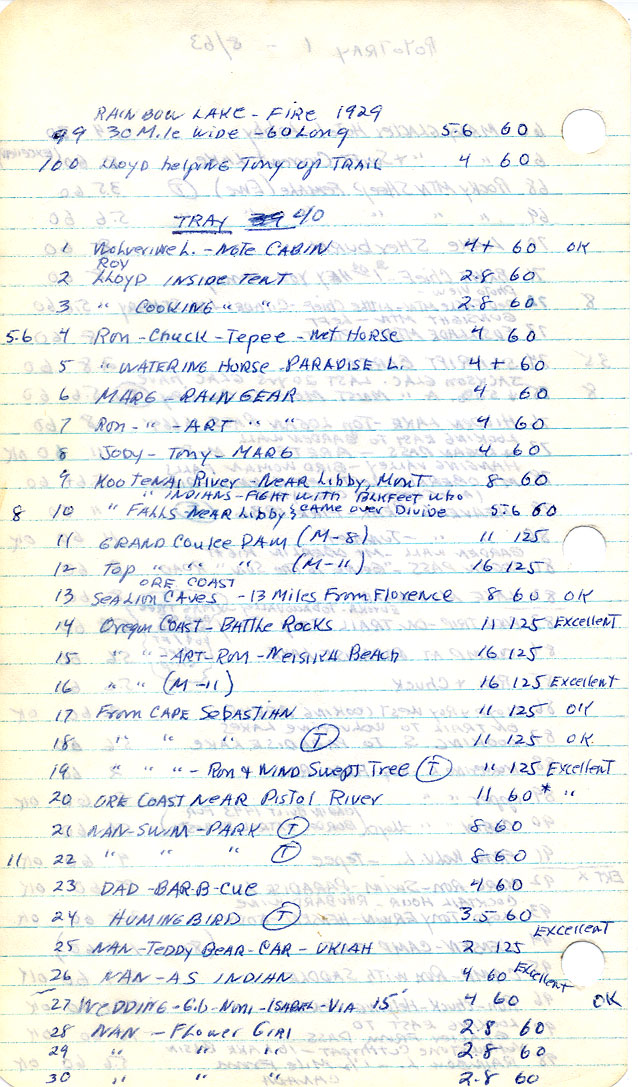 RAINBOW LAKE - FIRE 1929
99 30 Mile wide - 60 Long 5.6 60
100 Lloyd helping Tony up TRAIL 4 60
TRAY 39 40
1 Wolverine L. - Note CABIN 4+ 60 OK
ROY
2 Lloyd INSIDE TENT 2.8 60
3 " COOKING " " 2.8 60
5.6 4 Ron - Chuck - Tepee - Wet Horse 4 60
5 " WATERING HORSE PARADISE L. 4+ 60
6 MARG - RAIN GEAR 4 60
7 Ron - " - ART " " 4 60
8 Jody - Tony - MARG 4 60
9 Kootenai River - Near Libby, Mont 8 60
" INDIANS - FIGHT with BLKFEET who
8 10 " FALLS Near Libby & CAME over Divide 5.6 60
11 GRAND Coulee DAM (M-8) 11 125
12 Top " " (M-11) 16 125
ORE COAST
13 Sea Lion Caves - 13 Miles From Florence 8 60 OK
14 Oregon Coast - Battle Rocks 11 125 Excellent
15 " " - ART - Ron - Beach 16 125
16 " " (M-11) 16 125 Excellent
17 From CAPE SebASTIAN 11 125 OK
18 " " " T 11 125 OK
19 " " " - Ron & WIND Swept Tree T " 125 Excellent
20 ORE COAST NEAR Pistol River 11 60 * "
21 NAN - SWIM - PARK T 8 60
11 22 " " " T 8 60
23 DAD - BAR-B-CUE 4 60
24 HUMINGBIRD T 3.5 60
Excellent
25 NAN - Teddy Bear - CAR - UKIAH 2 125
26 NAN - AS INDIAN 4 60 Excellent
27 WEDDING - Gib - - ISABEL - VIA 15 4 60 OK
28 NAN - Flower Girl 2.8 60
29 " " " 2.8 60
30 " " " 2.8 60